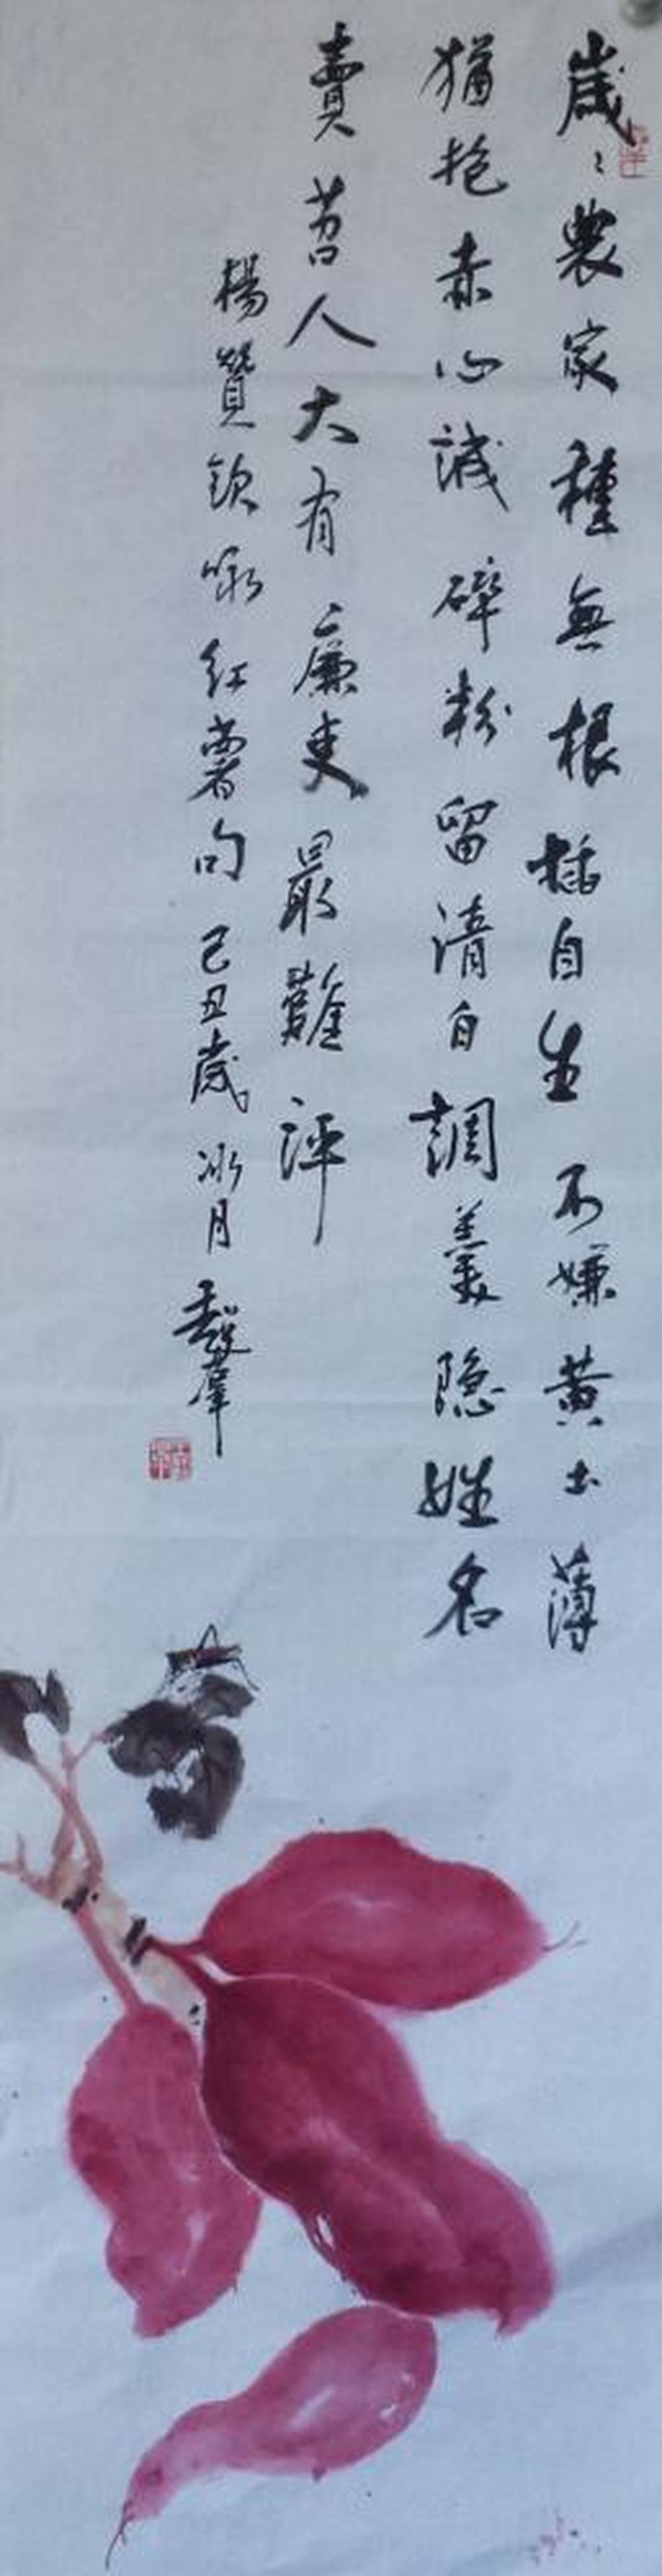 歲々農家種無根插自生不嫌黄土薄
猶抱赤心誠碎粉留清白調羹隐姓名
賣苕人大有廉吏最難評
楊贊欽詠红薯句己丑歲冰月